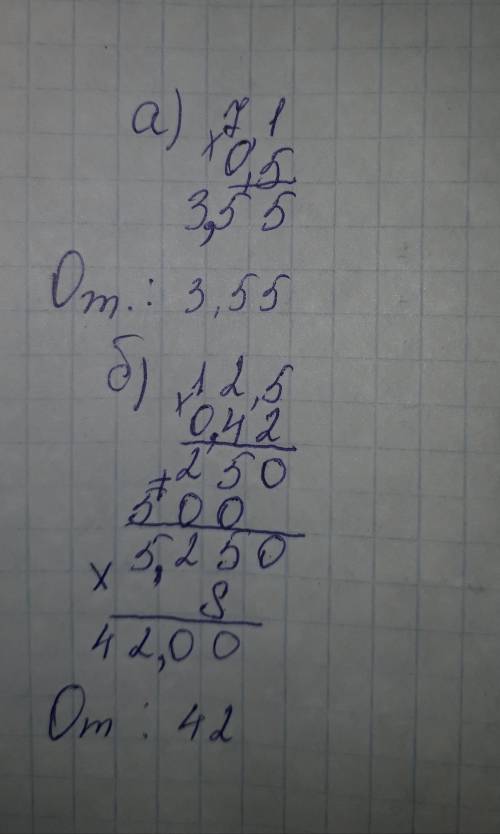 а) 7,1
× 0,5
3,55
От.: 3,55
б) 12,5
× 0,42
+ 250
500
5,250
× 8
42,00
От: 42